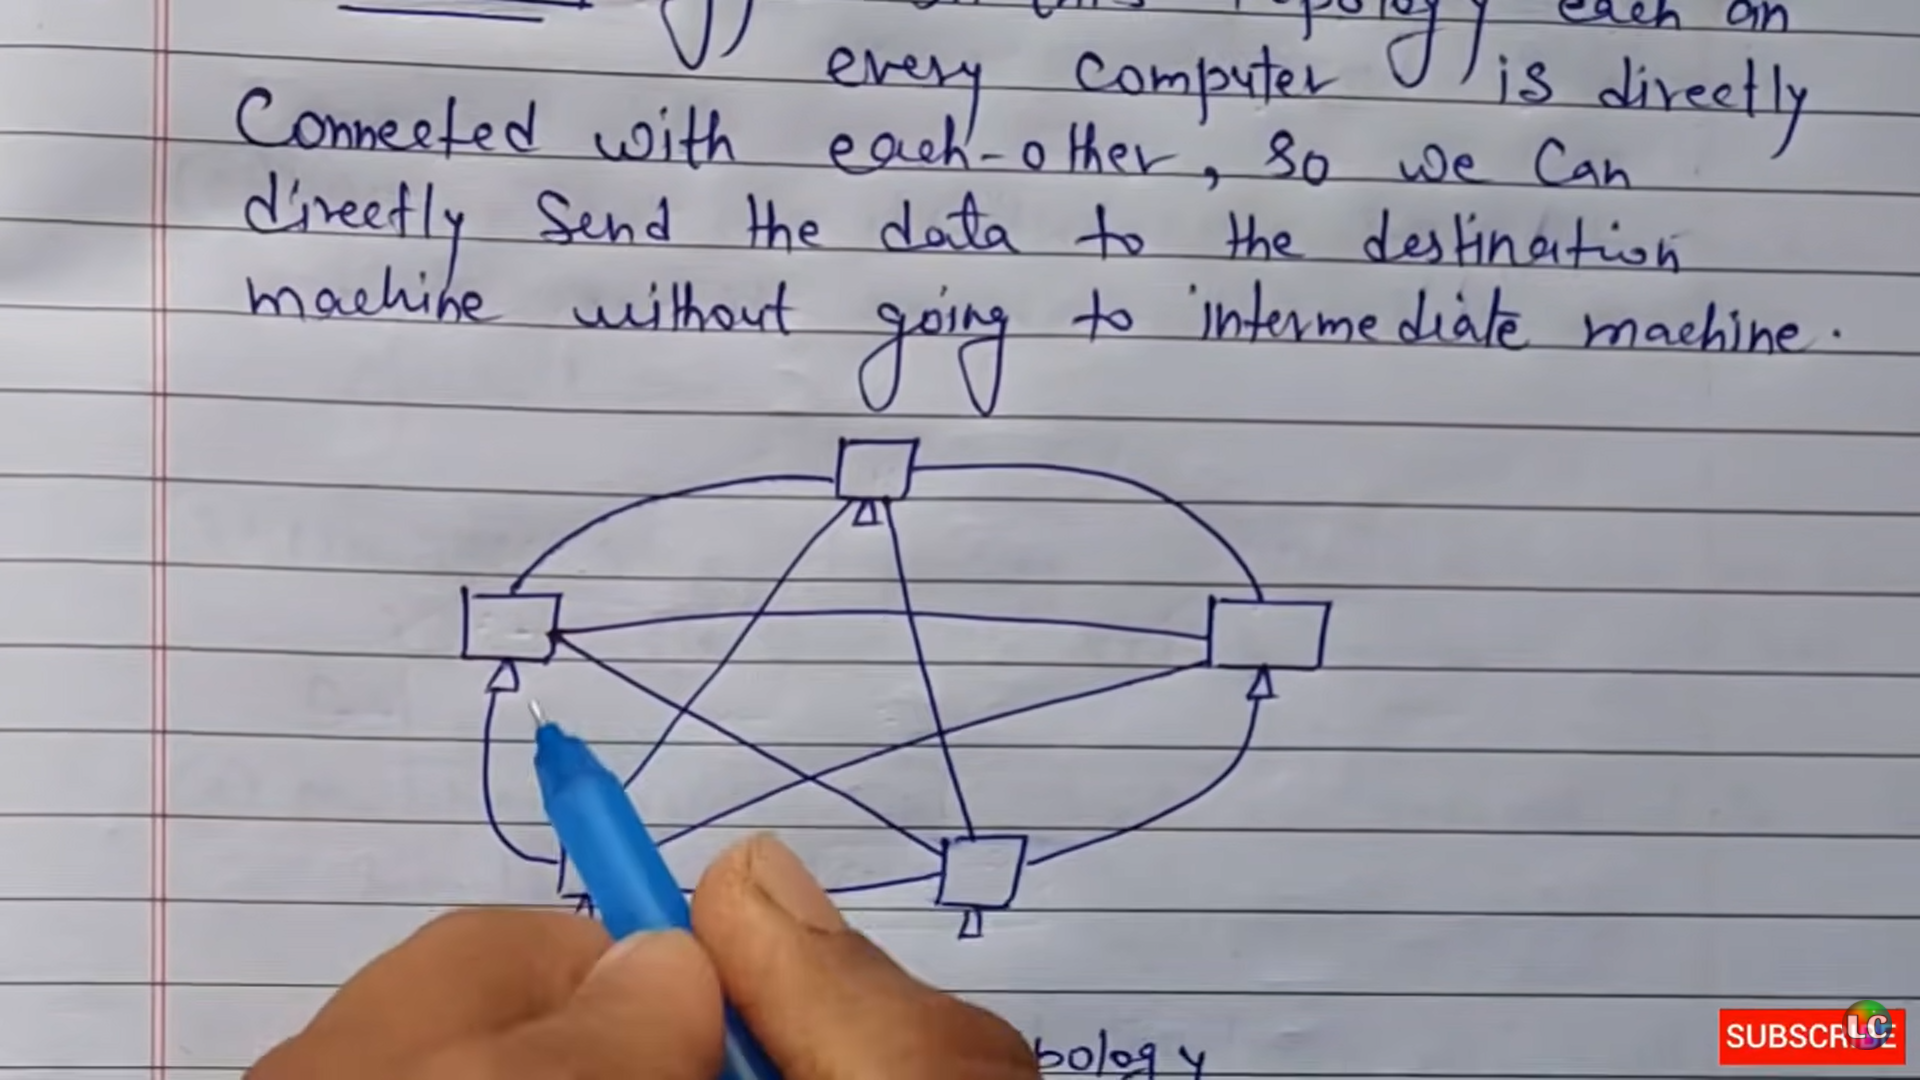 this Topology each an
every computer is directly
Connected with each-other, so we can
directly Send the data to the destination
machine without going to intermediate machine.
SUBSCRIBE
LC